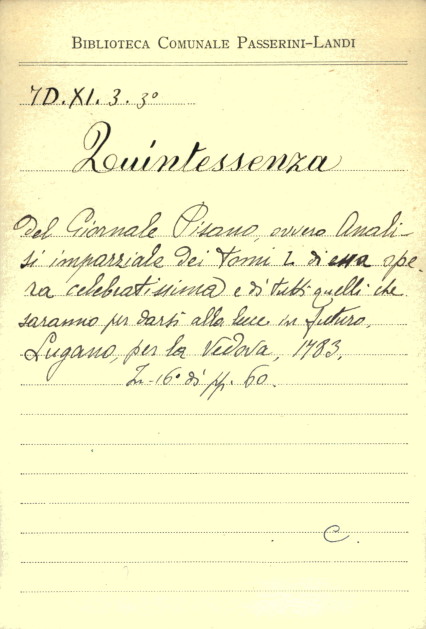 BIBLIOTECA COMUNALE PASSERINI-LANDI
7D.XI.3.3º
Quintessenza
del Giornale Pisano, ovvero Anali-
si imparziale dei tomi 2 di essa ope-
ra celebratissima e di tutti quelli che
saranno per darsi alla luce in futuro.
Lugano, per la Vedova, 1783.
In-16º di pp. 60.
C.